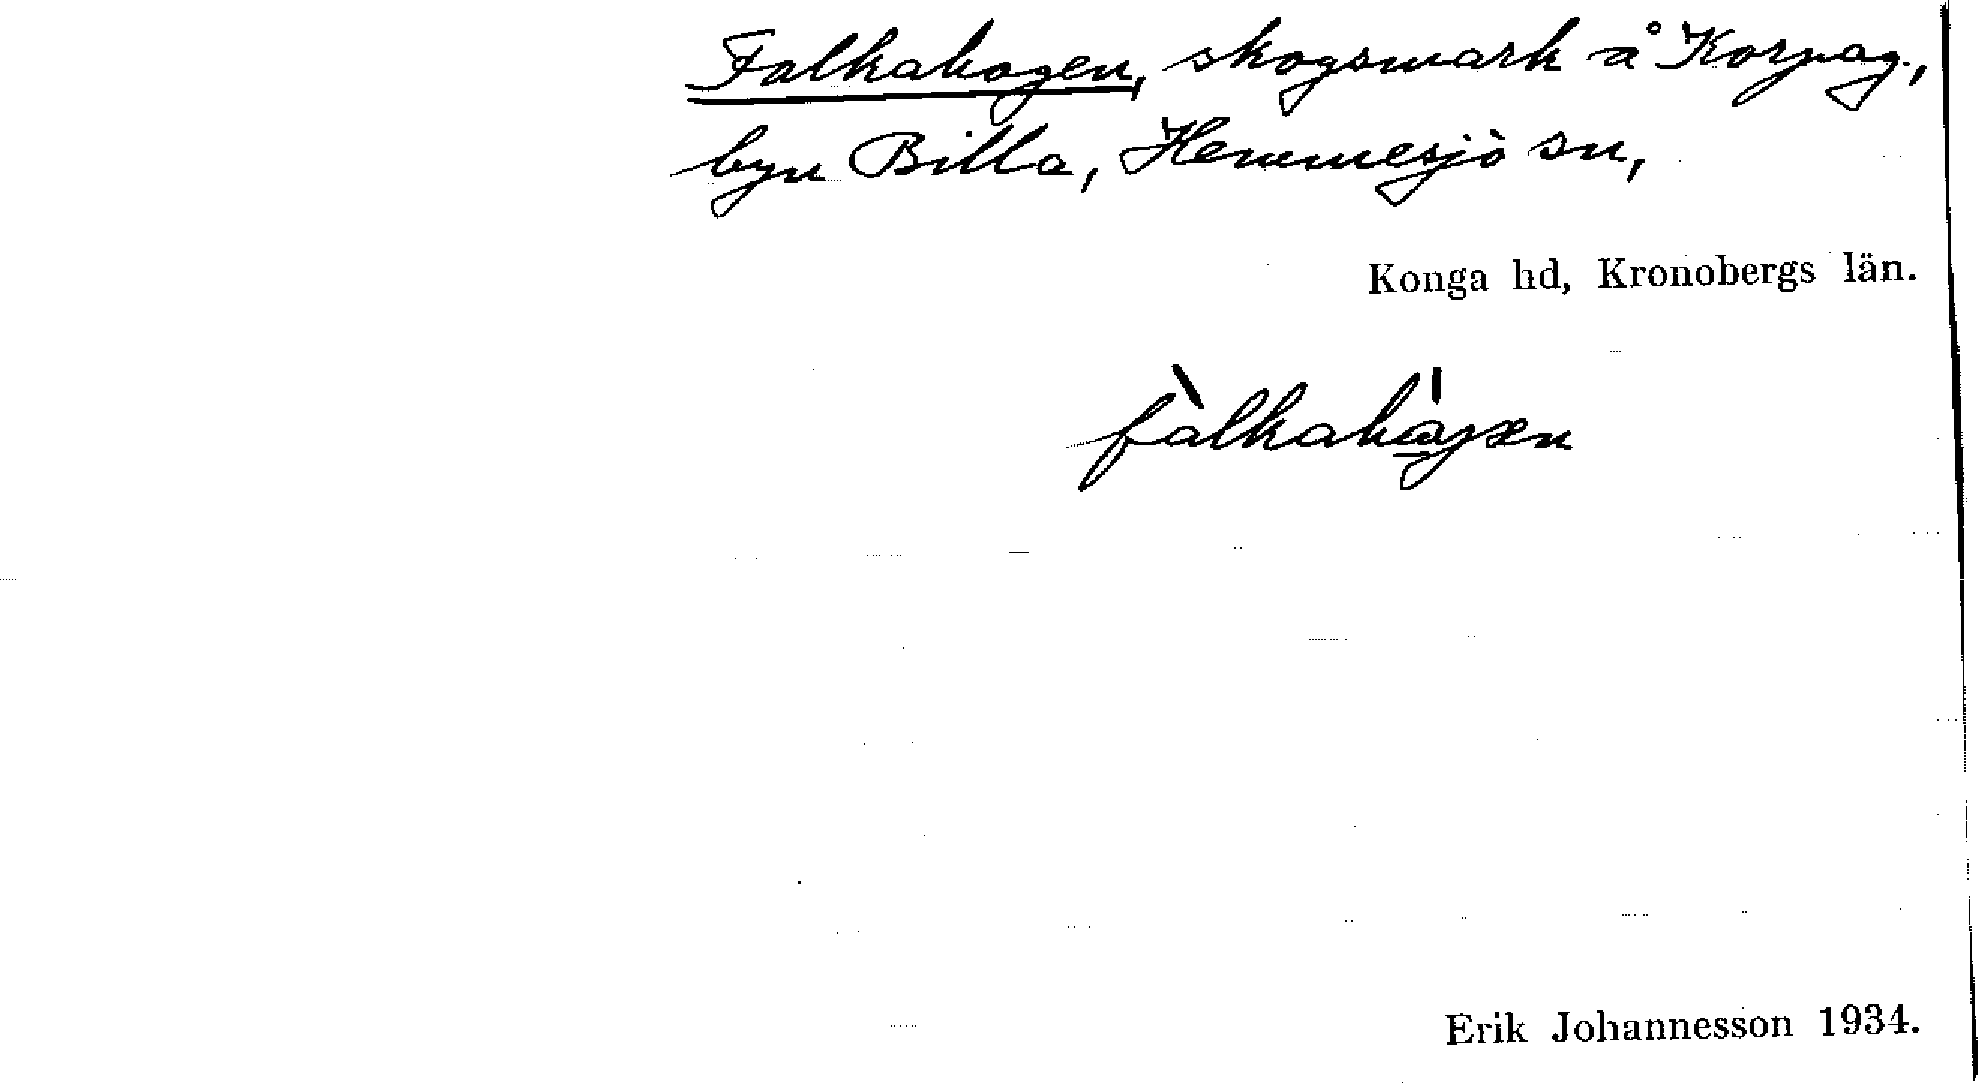 Falkahagen, skogsmark å Korpag.,
byn Billa, Hemmesjö sn,
Konga hd, Kronobergs län.
Erik Johannesson 1934.